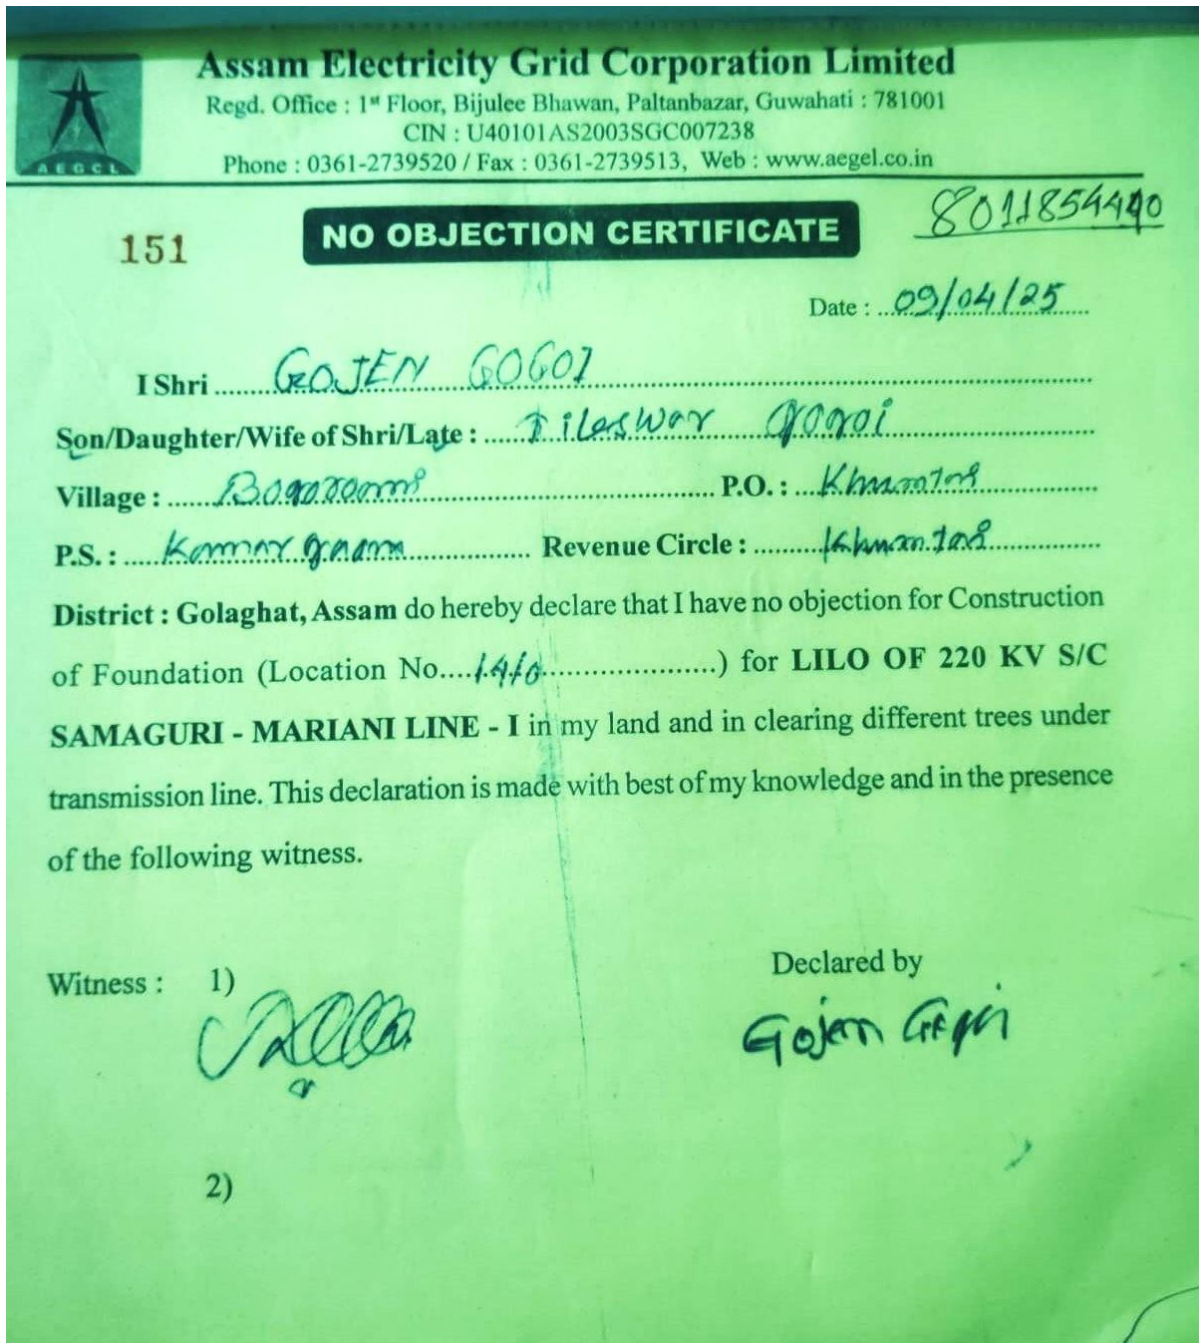 AEGCL
Assam Electricity Grid Corporation Limited
Regd. Office : 1st Floor, Bijulee Bhawan, Paltanbazar, Guwahati : 781001
CIN : U40101AS2003SGC007238
Phone : 0361-2739520 / Fax : 0361-2739513, Web : www.aegel.co.in
8011854440
151 NO OBJECTION CERTIFICATE
Date : 09/04/25
I Shri GOJEN GOGOI
Son/Daughter/Wife of Shri/Late : Tileswar Gogoi
Village : P.O. : Khumtai
P.S. : Kamargaon Revenue Circle : Khumtai
District : Golaghat, Assam do hereby declare that I have no objection for Construction
of Foundation (Location No. 14/0 ) for LILO OF 220 KV S/C
SAMAGURI - MARIANI LINE - I in my land and in clearing different trees under
transmission line. This declaration is made with best of my knowledge and in the presence
of the following witness.
Declared by
Witness : 1)
Gojen Gogoi
2)